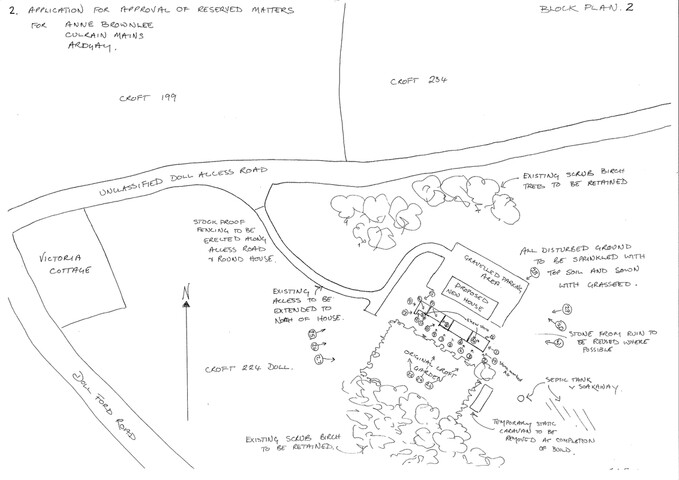 2. APPLICATION FOR APPROVAL OF RESERVED MATTERS
FOR ANNE BROWNLEE
CULRAIN MAINS
ARDGAY.
BLOCK PLAN. 2
CROFT 199
CROFT 234
UNCLASSIFIED DOLL ACCESS ROAD
EXISTING SCRUB BIRCH
TREES TO BE RETAINED
STOCK PROOF
FENCING TO BE
ERECTED ALONG
ACCESS ROAD
& ROUND HOUSE.
VICTORIA
COTTAGE
ALL DISTURBED GROUND
TO BE SPRINKLED WITH
TOP SOIL AND SOWN
WITH GRASSEED.
GRAVELLED PARKING
AREA
PROPOSED
NEW HOUSE
N
EXISTING
ACCESS TO BE
EXTENDED TO
NORTH OF HOUSE.
STONE FROM RUIN TO
BE REUSED WHERE
POSSIBLE
CROFT 224 DOLL.
ORIGINAL CROFT
GARDEN
SEPTIC TANK
& SOAKAWAY.
DOLL FORD ROAD
TEMPORARY STATIC
CARAVAN TO BE
REMOVED AT COMPLETION
OF BUILD.
EXISTING SCRUB BIRCH
TO BE RETAINED.